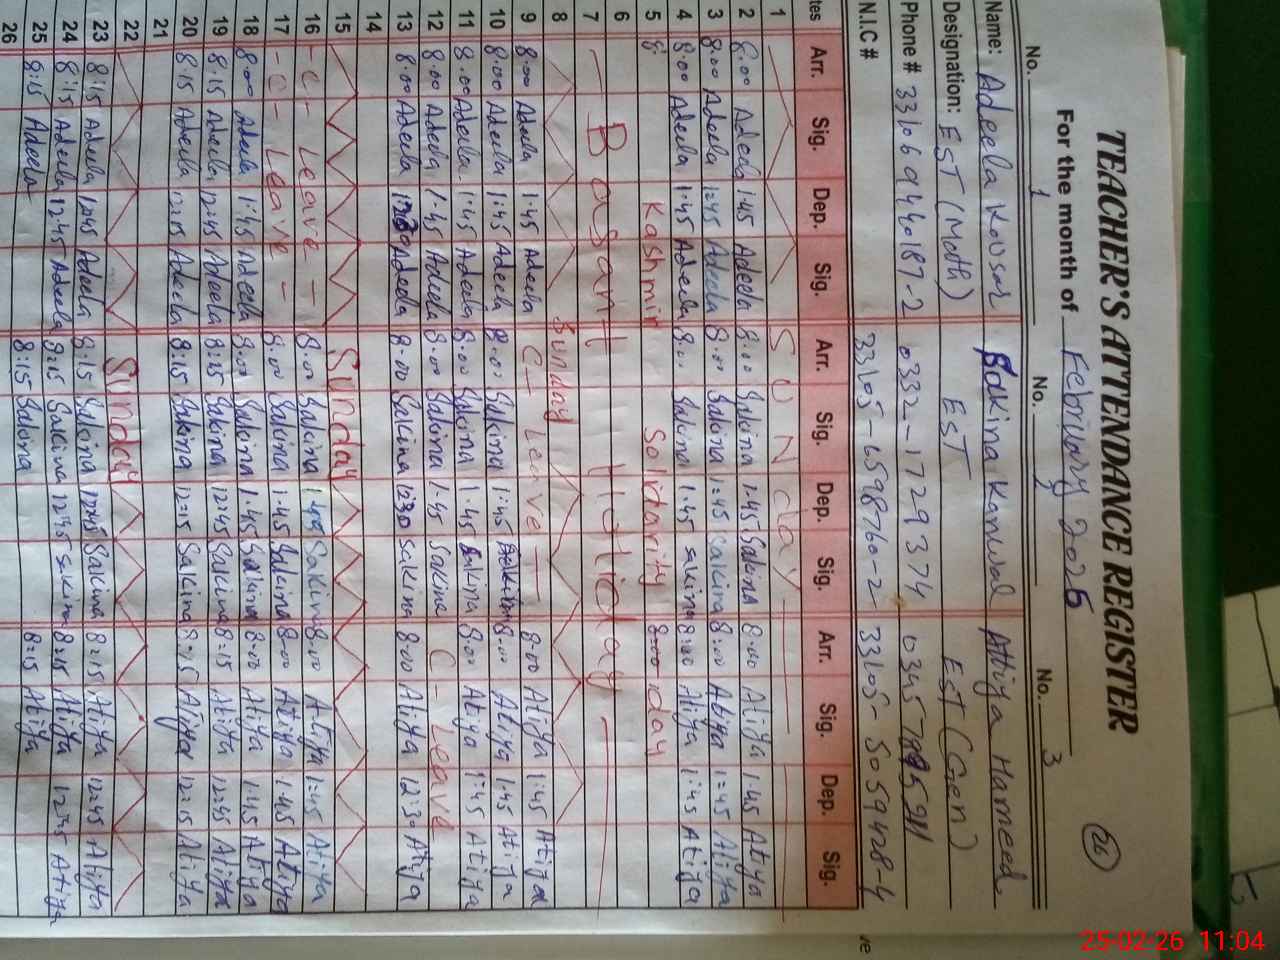 TEACHER'S ATTENDANCE REGISTER
26
For the month of February 2026
No. 1 No. 2 No. 3
Name: Adeela Kousar Sakina Kanwal Attiya Hameed
Designation: EST (Math) EST EST (Gen)
Phone # 0332-1729374
N.I.C # 33105-6598760-2 33105-5059428-4
tes Arr. Sig. Dep. Sig. Arr. Sig. Dep. Sig. Arr. Sig. Dep. Sig.
1 SUNday
2 8:00 Adeela 1:45 Adeela 8:00 Sakina 1:45 Sakina 8:00 Atiya 1:45 Atiya
3 8:00 Adeela 1:45 Adeela 8:00 Sakina 1:45 Sakina 8:00 Atiya 1:45 Atiya
4 8:00 Adeela 1:45 Adeela 8:00 Sakina 1:45 Sakina 8:00 Atiya 1:45 Atiya
5 8: Kashmir Solidarity day
6 Basant Holiday
7
8 Sunday
9 8:00 Adeela 1:45 Adeela C- Leave 8:00 Atiya 1:45 Atiya
10 8:00 Adeela 1:45 Adeela 8:00 Sakina 1:45 8:00 Atiya 1:45 Atiya
11 8:00 Adeela 1:45 Adeela 8:00 Sakina 1:45 Sakina 8:00 Atiya 1:45 Atiya
12 8:00 Adeela 1:45 Adeela 8:00 Sakina 1:45 Sakina C- Leave
13 8:00 Adeela Adeela 8:00 Sakina 12:30 Sakina 8:00 Atiya 12:30 Atiya
14
15 Sunday
16 -C- Leave - 8:00 Sakina 1:45 Sakina 8:00 Atiya 1:45 Atiya
17 -C- Leave - 8:00 Sakina 1:45 Sakina 8:00 Atiya 1:45 Atiya
18 8:00 Adeela 1:45 Adeela 8:00 Sakina 1:45 Sakina 8:00 Atiya 1:45 Atiya
19 8:15 Adeela 12:45 Adeela 8:15 Sakina 12:45 Sakina 8:15 Atiya 12:45 Atiya
20 8:15 Adeela 12:15 Adeela 8:15 Sakina 12:15 Sakina 8:15 Atiya 12:15 Atiya
21
22 Sunday
23 8:15 Adeela 12:45 Adeela 8:15 Sakina 12:45 Sakina 8:15 Atiya 12:45 Atiya
24 8:15 Adeela 12:45 Adeela 8:15 Sakina 12:45 Sakina 8:15 Atiya 12:45 Atiya
25 8:15 Adeela 8:15 Sakina 8:15 Atiya
26
ve
25-02-26 11:04